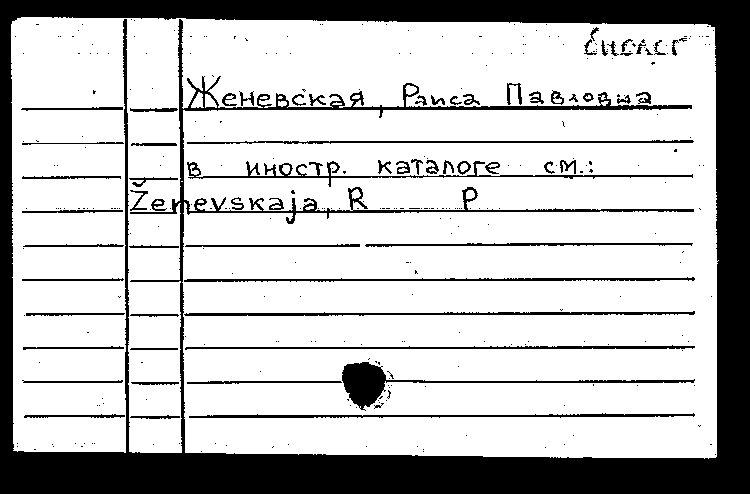 биолог
Женевская, Раиса Павловна
в иностр. каталоге см.:
Ženevskaja, R P